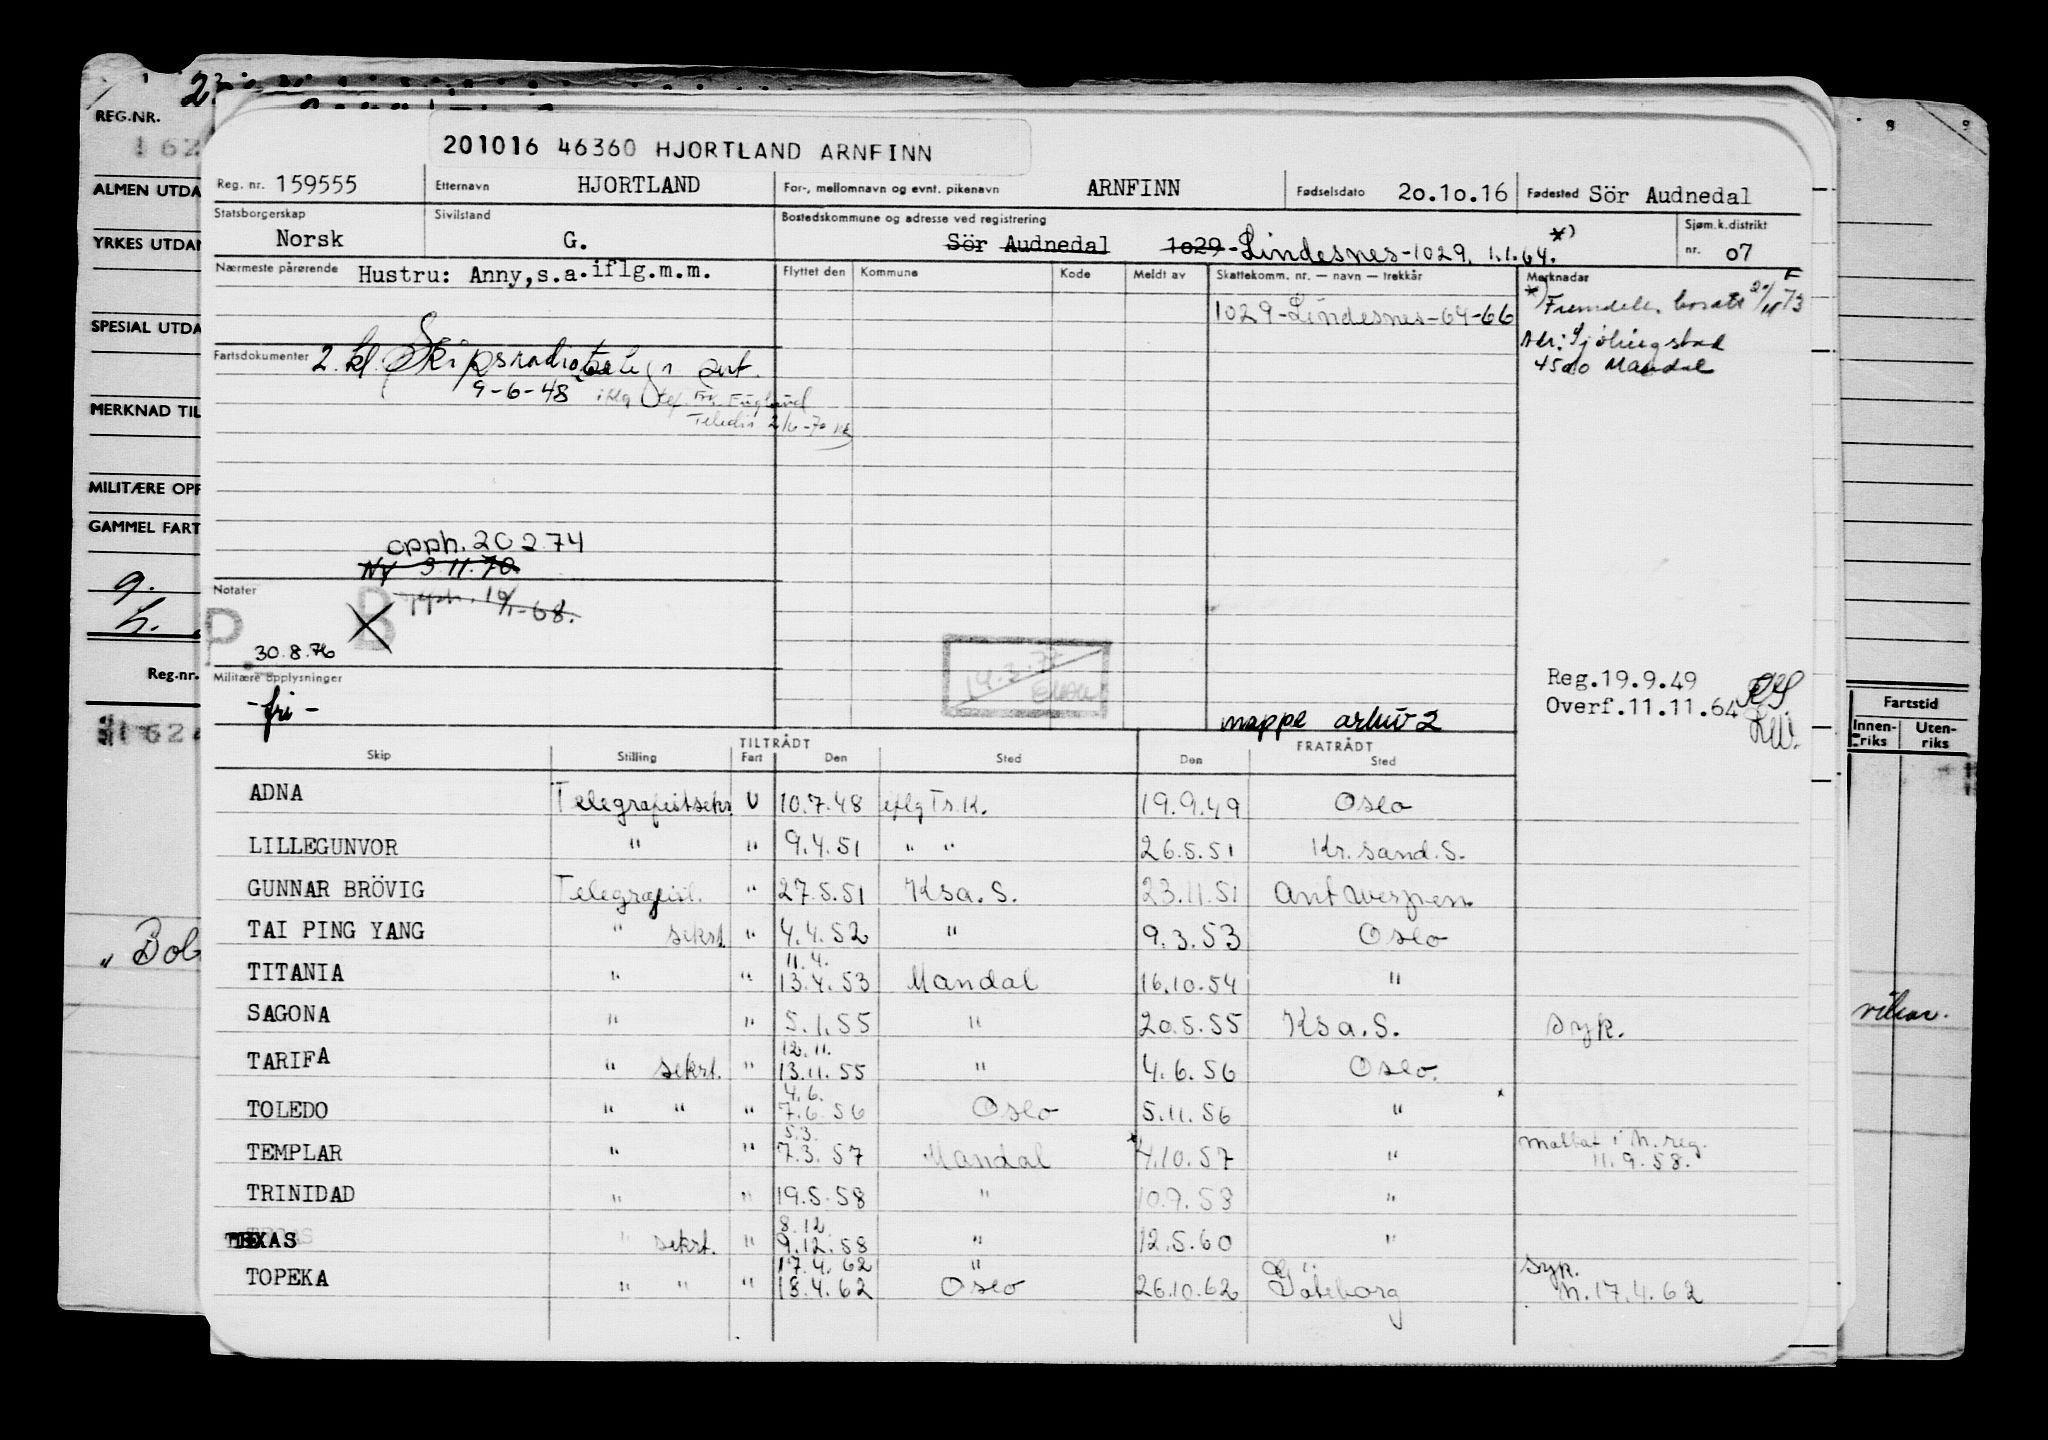 201016 46360 HJORTLAND ARNFINN
Reg. nr. 159555 Etternavn HJORTLAND For-, mellomnavn og evnt. pikenavn ARNFINN Fødselsdato 20.10.16 Fødested Sör Audnedal
Statsborgerskap Norsk Sivilstand G. Bostedskommune og adresse ved registrering Sör Audnedal 1029-Lindesnes-1029, 1.1.64. *) Sjøm.k.distrikt nr. 07
Nærmeste pårørende Hustru: Anny,s.a.iflg.m.m. Flyttet den Kommune Kode Meldt av Skattekomm. nr. — navn — trekkår Merknadar
1029-Lindesnes-64-66
*) Fremdeles bosatt
Adr:
4500 Mandal
Fartsdokumenter 2. kl. Skipsradiotelegr
9-6-48
opph. 20 2.74
Ny 3 11.70
Notater
P. B
30.8.76
Militære opplysninger
- fri -
mappe arkiv 2
Reg.19.9.49
Overf.11.11.64
TILTRÅDT FRATRÅDT
Skip Stilling Fart Den Sted Den Sted
ADNA Telegrafistsekr U 10.7.48 iflg Tr.K. 19.9.49 Oslo
LILLEGUNVOR " " 9.4.51 " " 26.5.51 Kr.sand.S.
GUNNAR BRÖVIG Telegrafist. " 27.5.51 Ksa.S. 23.11.51 Antwerpen
TAI PING YANG " sekrt. " 4.4.52 " 9.3.53 Oslo
TITANIA " " 11.4. 13.4.53 Mandal 16.10.54 "
SAGONA " " 5.1.55 " 20.5.55 Ksa.S. syk.
TARIFA " sekrt. " 12.11. 13.11.55 " 4.6.56 Oslo.
TOLEDO " " " 4.6. 7.6.56 Oslo 5.11.56 "
TEMPLAR " " 5.3. 7.3.57 Mandal 4.10.57 " mottat i N.reg. 11.9.58.
TRINIDAD " " 19.5.58 " 10.9.58 "
TEXAS " sekrt. " 8.12 9.12.58 " 12.5.60 "
TOPEKA " " " 17.4.62 18.4.62 " Oslo 26.10.62 Göteborg syk. N.17.4.62
REG.NR.
ALMEN UTDA
YRKES UTDAN
SPESIAL UTDA
MERKNAD TIL
MILITÆRE OPP
GAMMEL FART
Reg.nr.
Fartstid
Innen-riks Uten-riks